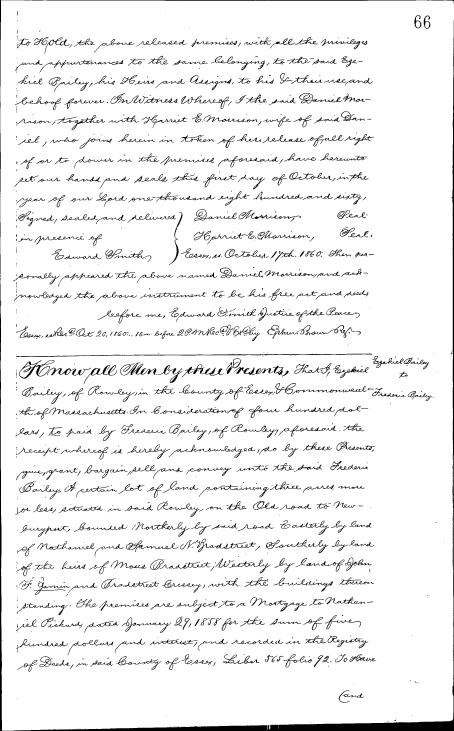 66
to Hold, the above released premises, with all the privileges
and appurtenances to the same belonging, to the said Eze-
kiel Bailey, his Heirs and Assigns, to his & their use, and
behoof forever. In Witness Whereof, I the said Daniel Mor-
rison, together with Harriet E. Morrison, wife of said Dan-
iel, who joins herein in token of her release of all right
of or to dower in the premises aforesaid, have hereunto
set our hands and seals this first day of October, in the
year of our Lord one thousand eight hundred and sixty.
Signed, sealed, and delivered } Daniel Morrison, Seal
in presence of Harriet E. Morrison, Seal.
Edward Smith, Essex, ss October 17th, 1860. Then per-
sonally appeared the above named Daniel Morrison, and ack-
nowledged the above instrument to be his free act and deed
before me, Edward Smith Justice of the Peace,
Essex, ss Rec'd Oct 20, 1860. 15m before 2 P.M. Rec'd & Ex by Ephm Brown Regr
Know all Men by these Presents, That I, Ezekiel
Ezekiel Bailey
to
Frederic Bailey
Bailey, of Rowley, in the County of Essex, & Commonweal-
th of Massachusetts In Consideration of four hundred, dol-
lars, to paid by Frederic Bailey, of Rowley, aforesaid, the
receipt whereof is hereby acknowledged, do by these Presents,
give, grant, bargain, sell, and convey unto the said Frederic
Bailey, A certain lot of land containing three acres more
or less, situate in said Rowley on the Old road to New-
buryport, bounded Northerly by said road Easterly by land
of Nathaniel and Samuel N. Bradstreet, Southerly by land
of the heirs of Moses Bradstreet, Westerly by land of John
F. Jamin and Bradstreet Cressey, with the buildings thereon
standing. The premises are subject to a Mortgage to Nathan-
iel Pickard, dated January 29, 1858 for the sum of five
hundred dollars and interest, and recorded in the Registry
of Deeds, in said County of Essex, Liber 565 folio 92. To Have
(and